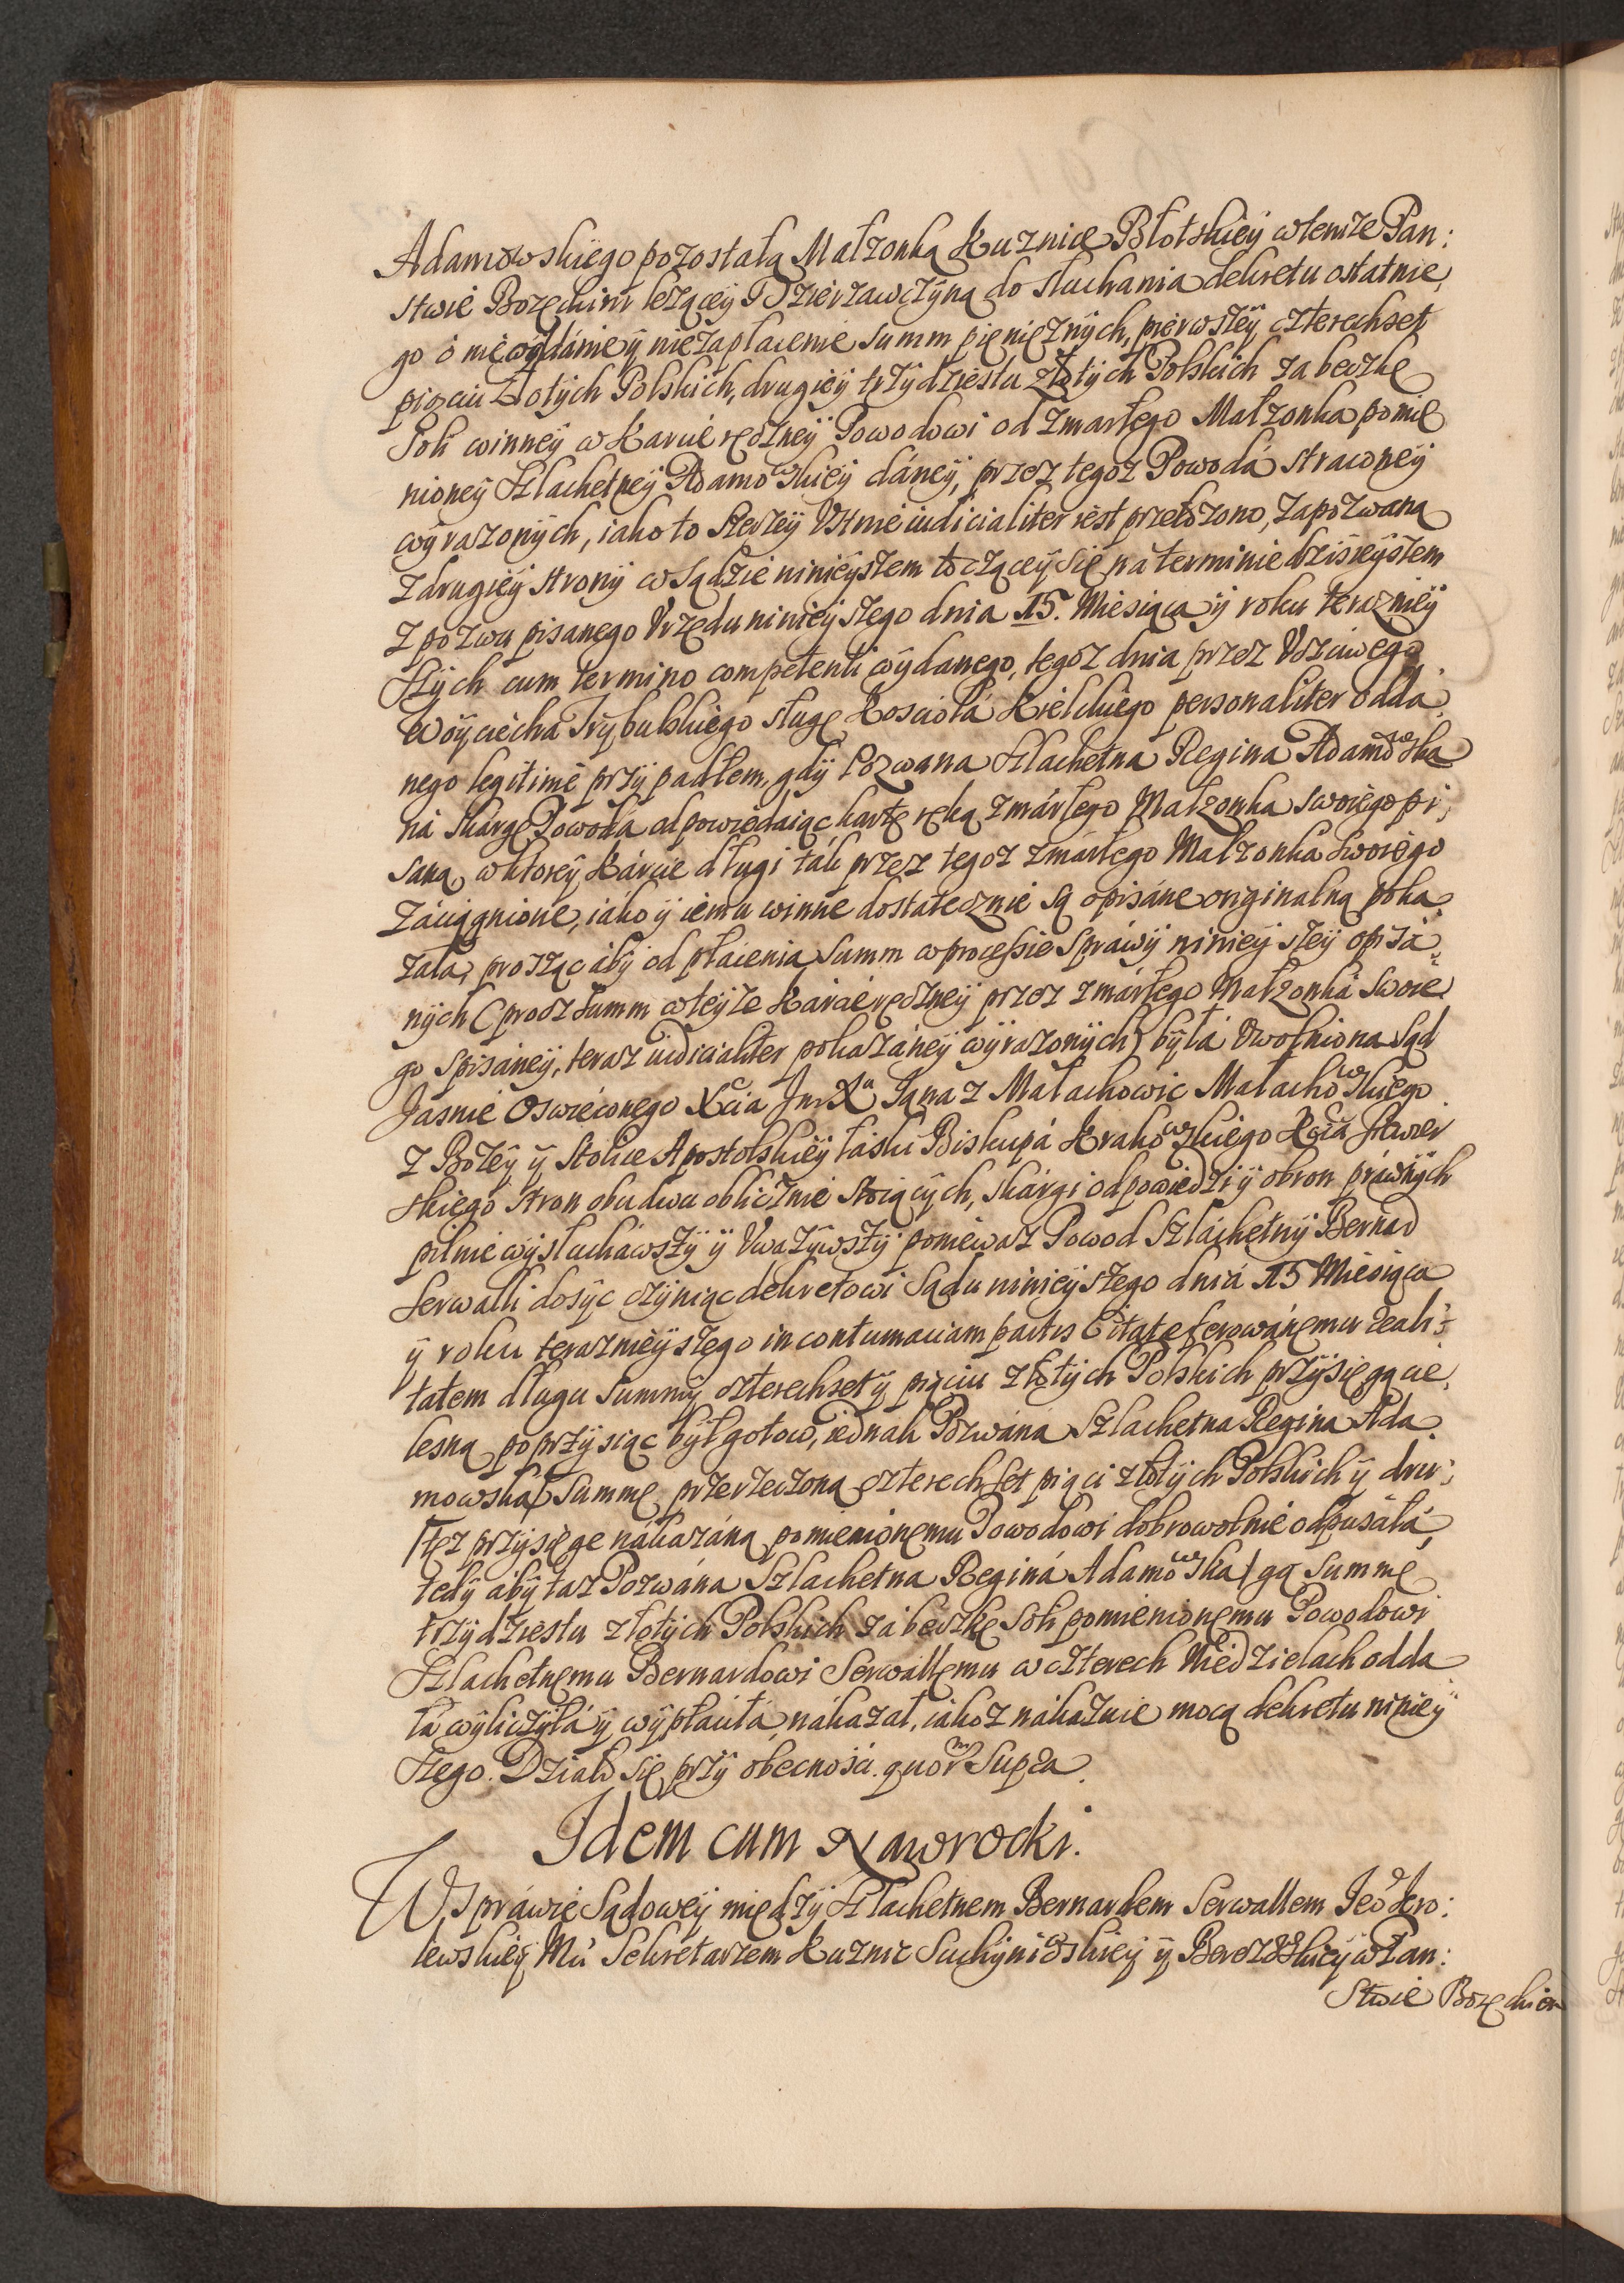 Adamowskiego pozostałą Małzonką Kuznice Błotskiey w temze Pan:
stwie Bozęckim lezącey Dzierzawczyną do słuchania dekretu ostatnie,
go o nie wydánie y nie zapłacenie summ pięnięznych, pierwszey czterechset
pięciu złotych Polskich, drugiey trzydziestu złotych Polskich za beczkę
Soli winney w Karcie ręczney Powodowi od zmarłego Małzonka pomie
nioney Szlachetney Adamowskiey dáney, przez tegoz Powodá straconey
wyrazonych, iako to szerzey Ustnie iudicialiter iest przełozono, zapozwaną
z drugiey strony w Sądzie ninieyszem toczącey się ná terminie dzisieyszem
z pozwu pisanego Urzędu ninieyszego dnia 15. Miesiąca y roku terazniey
szych cum termino competenti wydanego, tegoz dnia przez Uczciwego
Woyciecha Trybulskiego sługę Kosciołá Kielckiego personaliter odda,
nego legitimè przypadłem, gdy Pozwana Szlachetna Regina Adamowska
ná skargę Powoda odpowiedaiąc kartę ręką zmárłego Małzonka swoiego pi,
saną w ktorey Kárcie długi ták przez tegoz zmárłego Małzonka swoiego
záciągnione, iako y iemu winne dostatecznie są opisáne originalną poka,
zała, prosząc áby od płacenia summ w processie Spráwy ninieyszey opisá,
nych (procz summ w teyze Kárcie ręczney przez zmárłego Małzonká swoie
go spisáney, teraz iudicialiter pokazáney wyrazonych) byłá Uwolniona Sąd
Jasnie Oswieconego Xcia Jmsc Xa Janá z Małachowic Małachowskiego
z Bozey y Stolice Apostolskiey łaski Biskupá Krakowskiego Xcia Siewier
skiego stron obudwu oblicznie stoiących, skárgi odpowiedzi y obron práwnych
pilnie wysłuchawszy y Uwazywszy poniewaz Powod Szláchetny Bernad
Serwalli dosyc czyniąc dekretowi Sądu ninieyszego dniá 15 Miesiąca
y roku teraznieyszego in contumaciam partis Citatę ferowánemu reali,
tatem długu Summy czterechset y pięciu złotych Polskich przysięgą cie,
lesną poprzysiąc był gotow, iednak Pozwána Szlachetna Regina Ada,
mowska Summę przerzeczoną czterechset pięci złotych Polskich y dru,
tęz przysięge nákazáną pomienionemu Powodowi dobrowolnie odpusáłá,
tedy áby taz Pozwána Szlachetna Reginá Adamowska gą Summę
trzydziestu złotych Polskich zá beczkę Soli pomienionemu Powodowi
Szlachetnemu Bernardowi Serwallemu w czterech Niedzielach odda
łá wyliczyłá y wypłáciłá, nákazał, iakoz nákazuie mocą dekretu niniey
szego. Działo się przy obecnosci quor supra
Idem cum Nawrocki.
W Spráwie Sądowey między Szlachetnem Bernardem Serwallem Jeo Kro:
lewskiey Mci Sekretarzem Kuznic Suchyniowskiey y Berezowskiey w Pan:
Stwie Bozęckiem